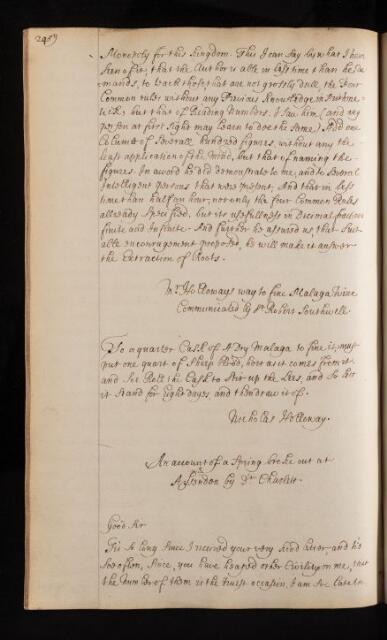 Monopoly for this Kingdom. This I can say by what I have
seen of it, that the Author is able in less time than he de
mands, to teach those that are not grossly dull, the four
Common rules without any Previous knowledge in Arithme
tick, but that of Reading Numbers. I saw him (and any
person at first sight may learn to doe the same) Add one
Columne of Severall hundred figures, without any the
least application of the mind, but that of naming the
figures. In a word he did demonstrate to me, and to Several
Intelligent persons that were present, and that in less
time than half an hour, not only the four Common Rules
allready Specified, but its usefullness in Decimal fractions
finite and Infinite. And further he assured us, that suit
able encouragement proposed, he will make it answer
the Extraction of Roots.
Mr. Holloways way to fine Malaga Wine
Communicated by Sr. Robert Southwell
To a quarter Cask of Dry Malaga to fine it, must
put one quart of Sheep Blood, hott as it comes from it
and so Role the Cask to Stir up the Lees, and so lett
it Stand for Eight dayes, and then draw it of.
Nicholas Holloway.
An account of a Spring broke out at
by Dr. Charlett.
Good Sir
Tis so long since I received your very kind letter and his
since, you have heaped other Civilitys on me, that
the Number of them is the truest occasion, I am so late in